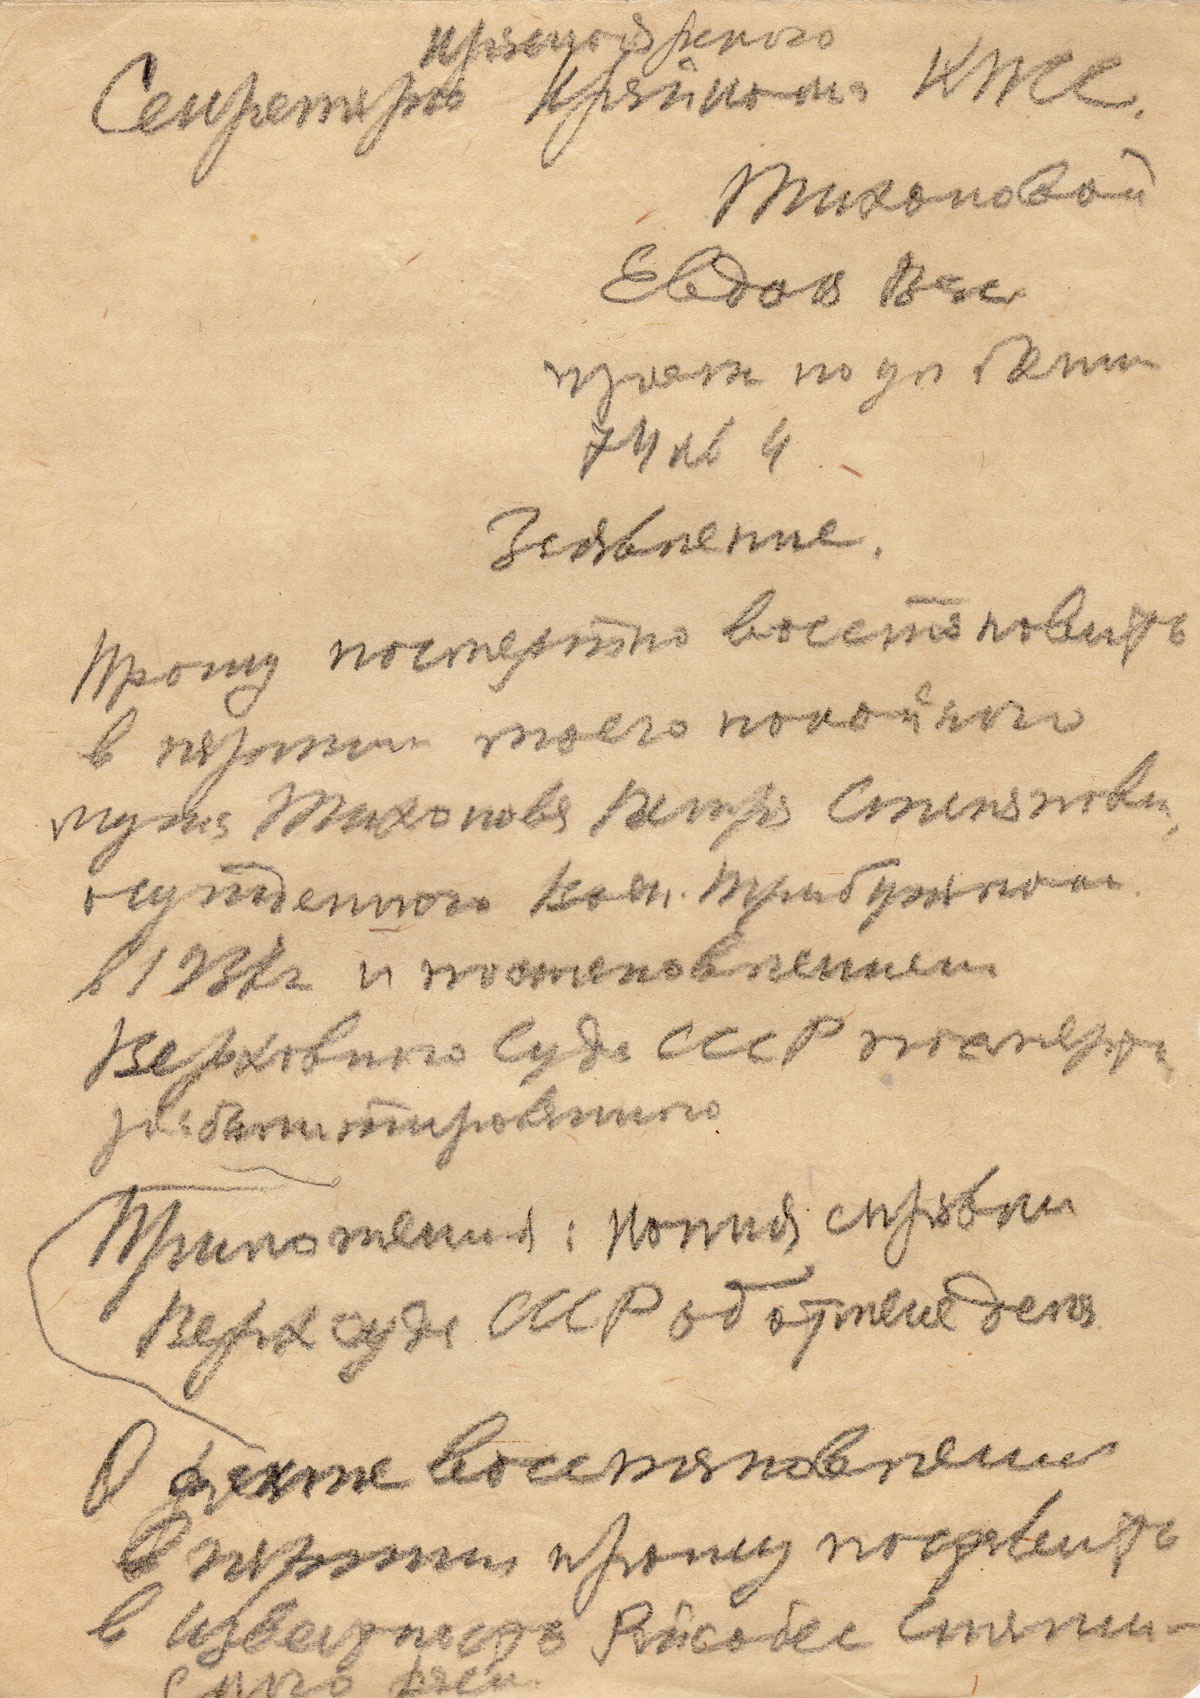 Красноярского
Секретарю Крайкома КПСС.
Тихоновой
Евдок Вас
прож по ул
74 кв 4
Заявление.
Прошу посмертно восстановить
в партии моего покойного
мужа Тихонова Петра Степанови,
осужденного Воен. Трибуналом
в 193 г и постановлением
Верховного Суда СССР посмертно
реабилитированного
Приложения: копия справки
Верх суда СССР об отмене дела
О факте восстановлении
в партии прошу поставить
в известность Райсобес Сталин-
ского рай.